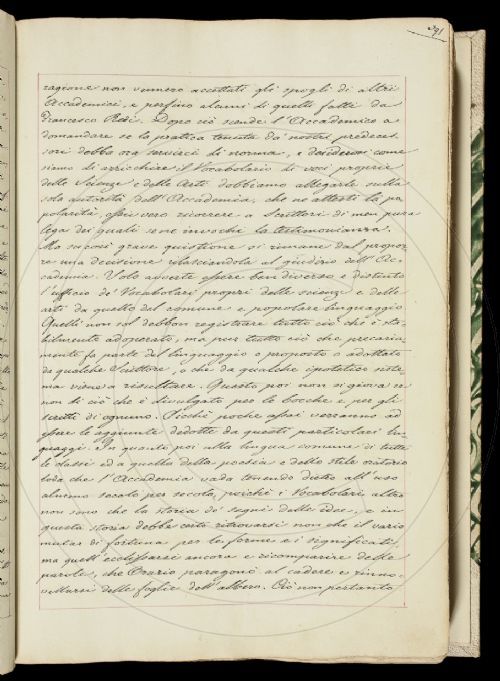 391
ragione non vennero accettati gli spogli di altri
Accademici, e perfino alcuni di quelli fatti da
Francesco Redi. Dopo ciò scende l'Accademico a
domandare se la pratica tenuta da' nostri predeces-
sori debba ora servirci di norma, e desideroso come
siamo di arricchire il Vocabolario di voci proprie
delle Scienze e delle Arti dobbiamo allegarle sulla
sola autorità dell'Accademia, che ne attesti la po
polarità, ossivero ricorrere a Scrittori di men pura
lega dei quali se ne invochi la testimonianza.
Ma su così grave quistione si rimane dal propor-
re una decisione rilasciandola al giudizio dell'Ac-
cademia. Vuole avverte essere ben diverso e distinto
l'ufficio de' Vocabolari propri delle scienze e delle
arti da quello del comune e popolare linguaggio
Quelli non sol debbon registrare tutto ciò che è sta-
bilmente adoperato, ma pur tutto ciò che precaria-
mente fa parte del linguaggio o proposto o adottato
da qualche Scrittore, o che da qualche ipotetico note
ma viene a risultare. Questo poi non si giova se
non di ciò che è divulgato per le bocche e per gli
scritti di ognuno. Sicchè poche assai verranno ad
essere le aggiunte dedotte da questi particolari lin-
guaggi. In quanto poi alla lingua comune di tutte
le classi ed a quella della poesia e dello stile oratorio
loda che l'Accademia vada tenendo dietro all'uso
almeno secolo per secolo, perchè i Vocabolari altro
non sono che la storia de' segni delle idee, e in
questa storia debbe certo ritrovarsi non che il vario
mutar di fortuna per le forme e i significati,
ma quell'ecclissarsi ancora e ricomparire delle
parole, che Orazio paragonò al cadere e rinno-
vellarsi delle foglie dell'albero. Ciò non pertanto